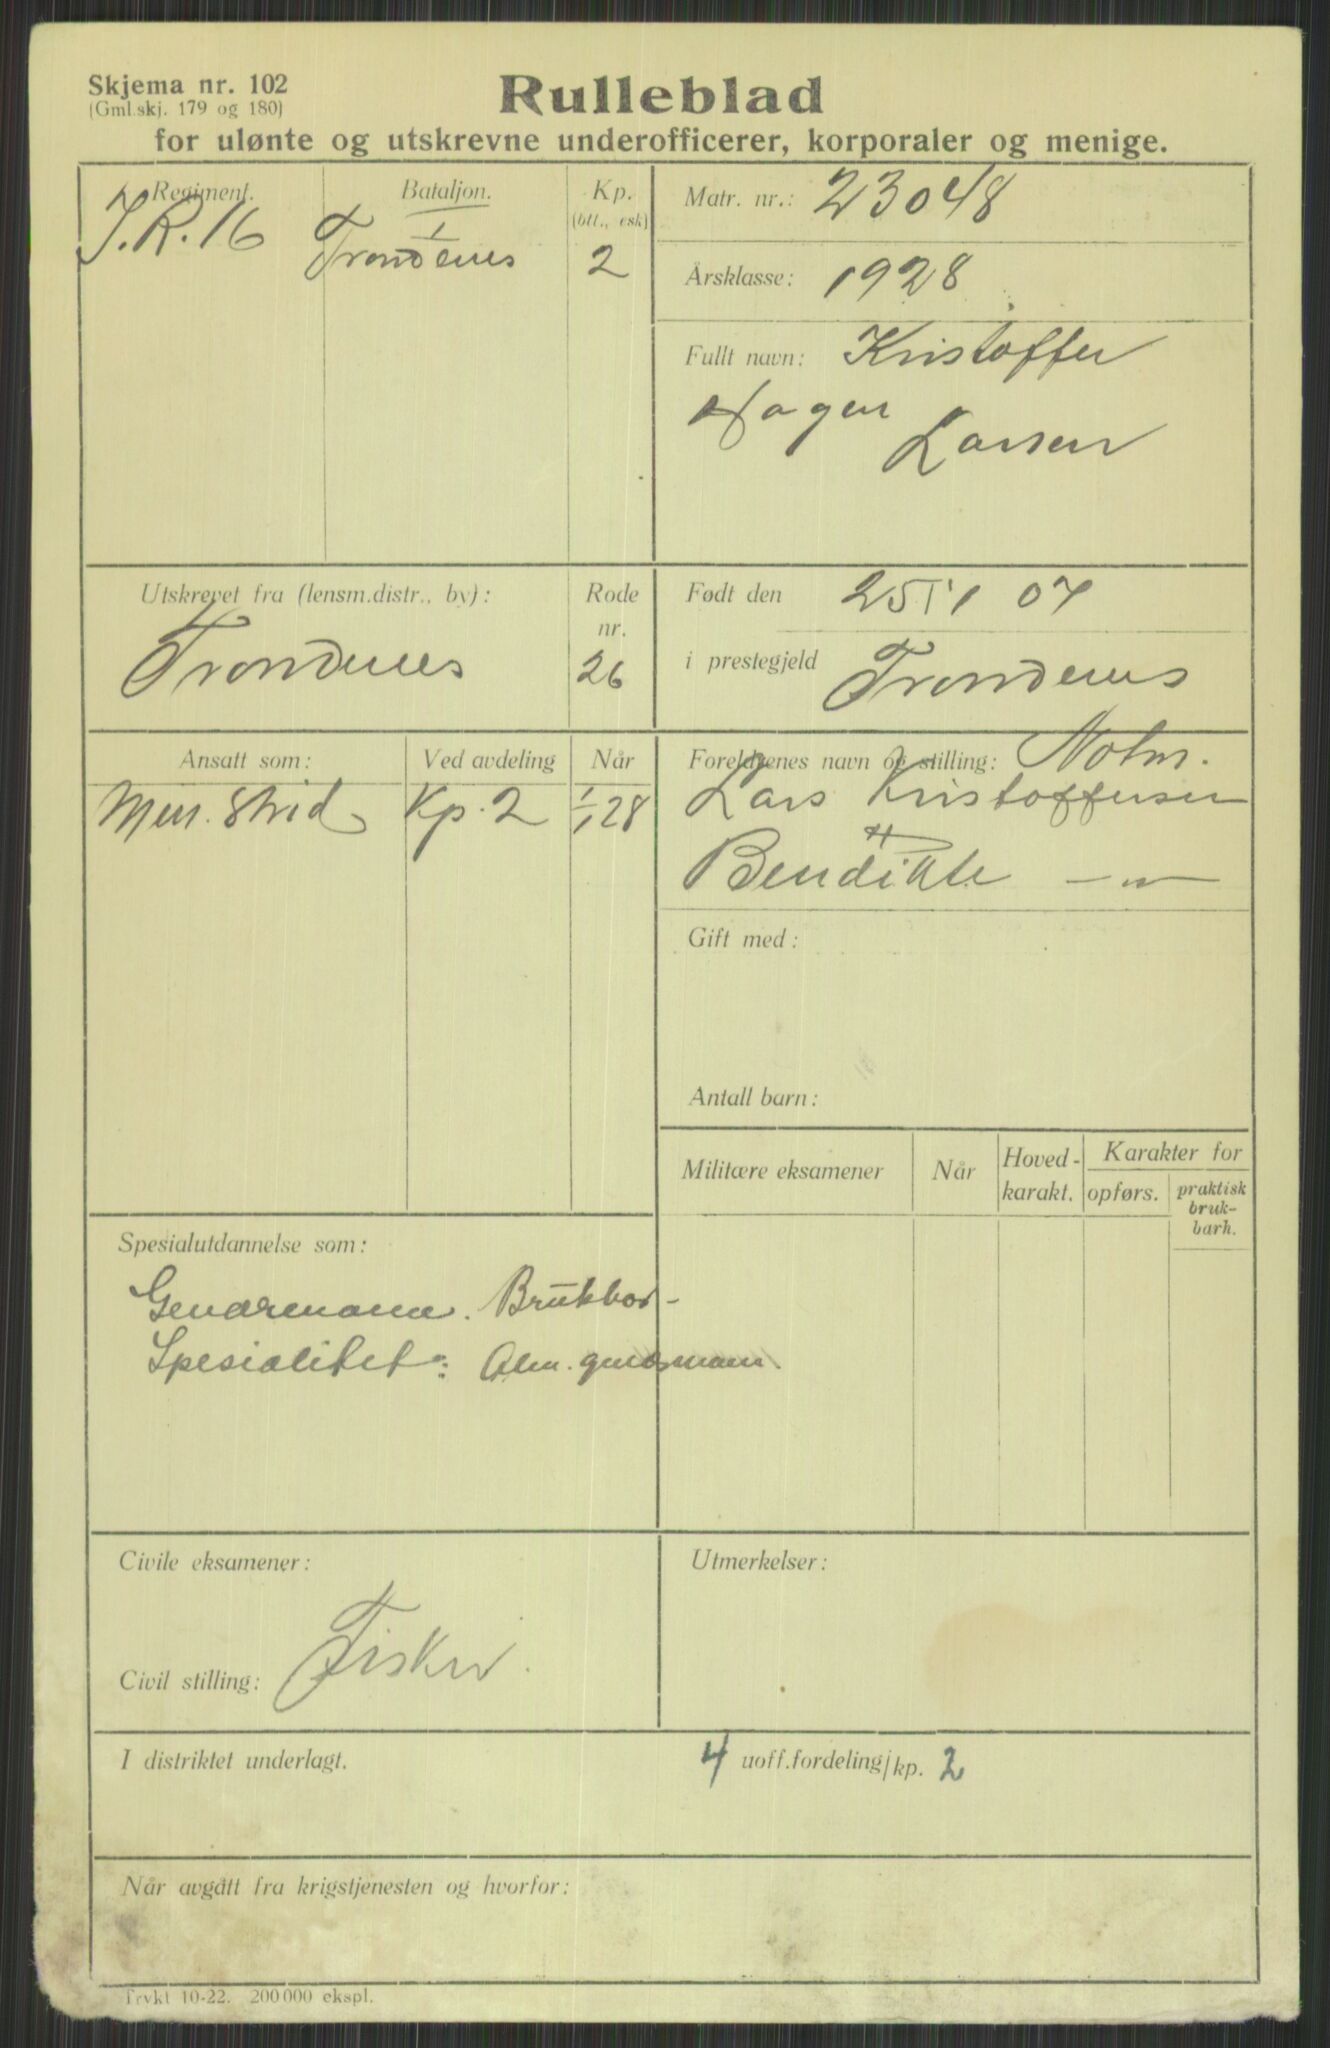 Skjema nr. 102
(Gml.skj. 179 og 180)
Rulleblad
for ulønte og utskrevne underofficerer, korporaler og menige.
Regiment.
I.R. 16
Bataljon.
I
Trondenes
Kp.
(btt., esk)
2
Matr. nr.: 23048
Årsklasse: 1928
Fullt navn: Kristoffer
Hagen
Larsen
Utskrevet fra (lensm.distr., by):
Trondenes
Rode
nr.
26
Født den 25/1 07
i prestegjeld Trondenes
Ansatt som:
Men. Strid
Ved avdeling
Kp. 2
Når
1/1 28
Foreldrenes navn og stilling:
Lars Kristoffersen
Bendikte — " —
Gift med:
Antall barn:
Militære eksamener
Når
Hoved-
karakt.
Karakter for
opførs.
praktisk
bruk-
barh.
Spesialutdannelse som:
Geværmann. Brukbar-
Spesialitet: Alm. geværmann.
Civile eksamener:
Civil stilling: Fisker.
Utmerkelser:
I distriktet underlagt. 4 uoff.fordeling/kp. 2
Når avgått fra krigstjenesten og hvorfor:
Trykt 10-22. 200 000 ekspl.